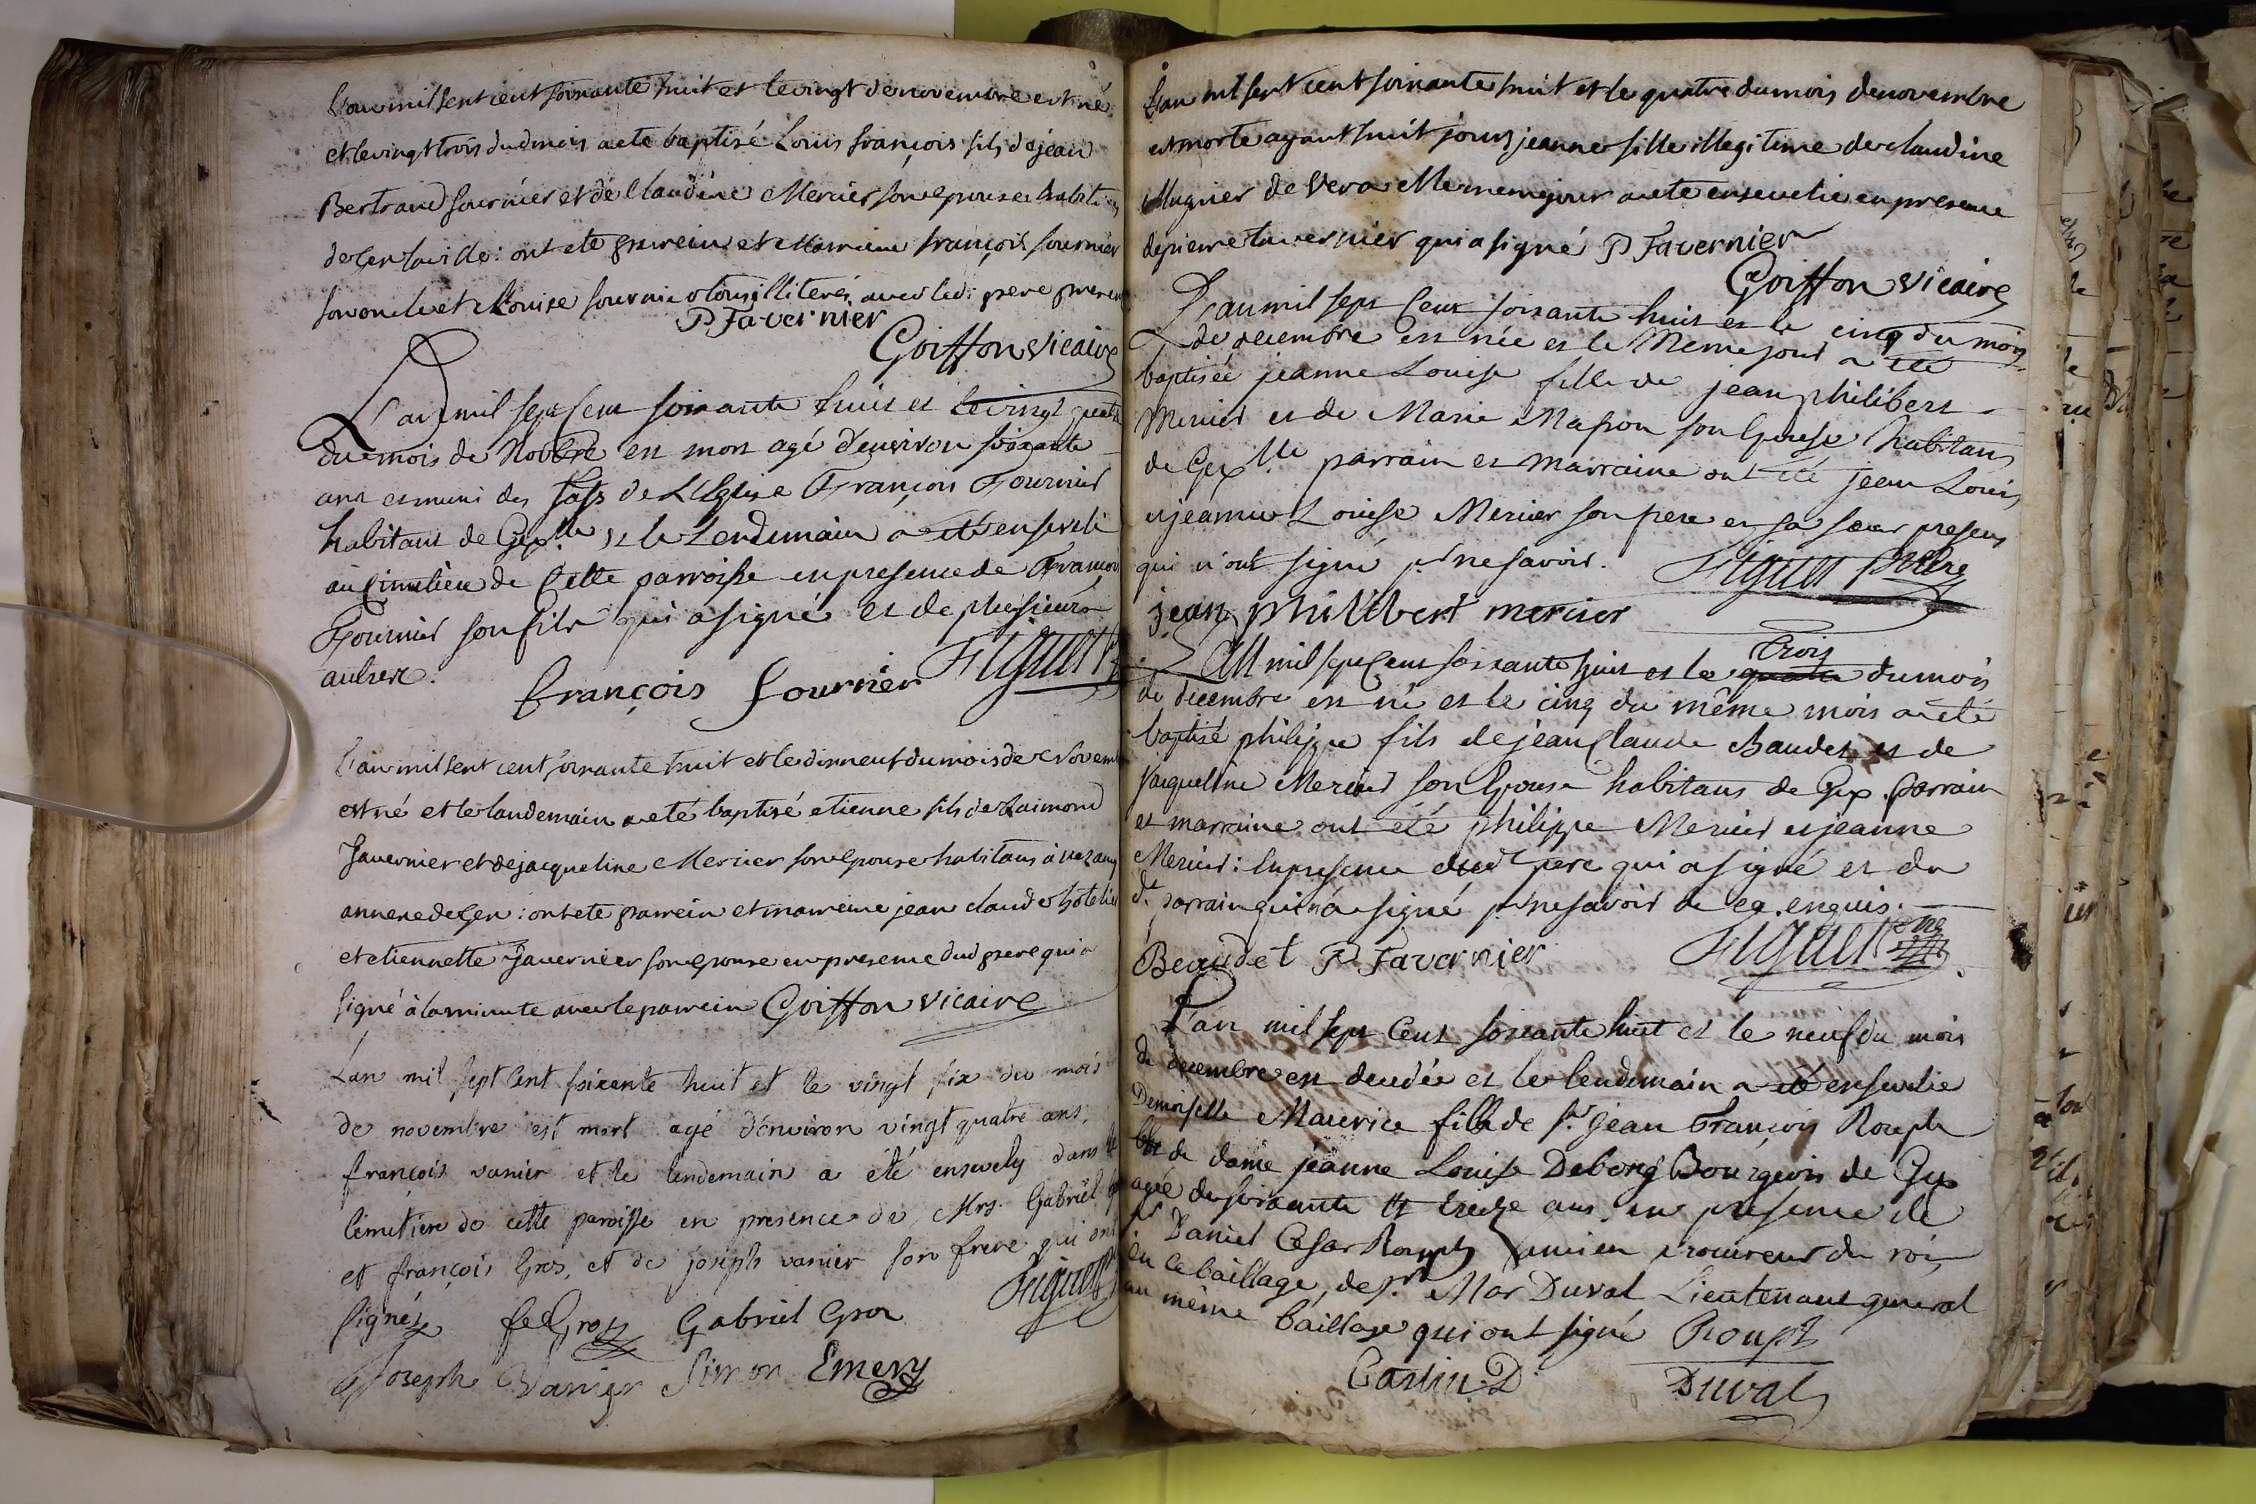 L'an mil sept cent soixante huit et le vingt de novembre est né
et le vingt trois dud mois a eté baptisé Louis françois fils de jean
Bertrand fournier et de Claudine Mercier son epouse habitans
de Gex la ville : ont eté parrein et Marreine françois fournier
son oncle et Louise fournier tous illiterés avec led: pere present
P Favernier
Goiffon vicaire
L'an mil sept Cent soixante huit et le vingt quatre
du mois de Novbre est mort agé d'environ soixante
ans et muni des Sats de L'Eglise François Fournier
habitant de Gex lle et le Lendemain a été enseveli
au Cimetiere de Cette parroisse en presence de François
Fournier son fils qui a signé et de plusieurs
aultres.
françois fournier Figuet
L'an mil sept cent soixante huit et le dixneuf du mois de Novembre
est né et le landemain a eté baptisé etienne fils de Raimond
Favernier et de jacqueline Mercier son epouse habitans à vezancy
annexe de Gex : ont eté parrein et marreine jean claude
et etiennette Favernier son epouse en presence dud pere qui a
signé à la minute avec le parrein Goiffon vicaire
L'an mil sept Cent soixante huit et le vingt six du mois
de novembre est mort agé d'environ vingt quatre ans,
françois vanier et le lendemain a été ensevely dans le
Cimetiere de cette paroisse en presence de Mrs. Gabriel
et françois Gros, et de joseph vanier son frere qui ont
signés f. Gros Gabriel Gros Figuet
Joseph Vanier Simon Emery
L'an mil sept cent soixante huit et le quatre du mois de novembre
est morte ayant huit jours jeanne fille illegitime de claudine
Mugnier de Vera Meme jour a eté ensevelie en presence
de pierre tavernier qui a signé P Favernier
Goiffon vicaire
L'an mil sept Cent soixante huit et le cinq du mois
de decembre est née et le Meme jour a été
baptisée jeanne Louise fille de jean philibert
Mercier et de Marie Masson son Epouse habitans
de Gex lle parrain et marraine ont été jean Louis
et jeanne Louise Mercier son frere et sa sœur presens
qui n'ont signé pr ne savoir. Figuet Ptre
jean philibert mercier
trois
L'an mil sept Cent soixante huit et le quatre du mois
de decembre est né et le cinq du même mois a été
baptisé philippe fils de jean Claude Baudet et de
Jacqueline Mercier son Epouse habitans de Gex. parrain
et marraine ont été philippe Mercier et jeanne
Mercier: En presence dud pere qui a signé et du
dt parrain qui n'a signé pr ne savoir de ce enquis.
Beaudet P Favernier Figuet ptre
L'an mil sept Cent soixante huit et le neuf du mois
de decembre est decedée et le lendemain a été ensevelie
Demoiselle Maurice fille de Sr jean François Rouph
et de dame jeanne Louise Deborg Bourgeois de Gex
agée de soixante et treize ans. en presence de
Sr Daniel Cesar Rouph ancien procureur du roi,
en ce baillage, de Sr. Mar Duval Lieutenant general
au même baillage qui ont signé Rouph
Castin. D Duval